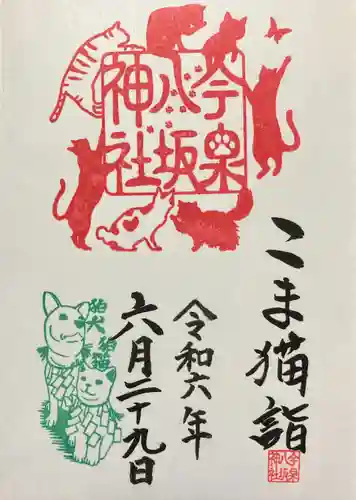 今泉
八坂
神社
こま猫詣
令和六年
六月二十九日
狛犬
狛猫
今泉
八坂
神社